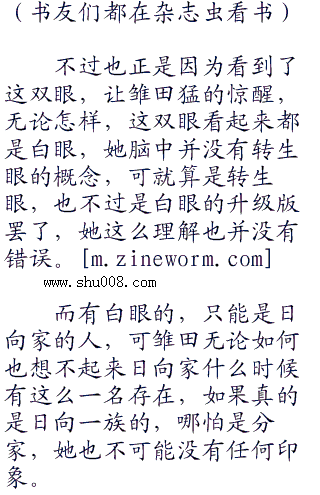 （书友们都在杂志虫看书）
不过也正是因为看到了
这双眼，让雏田猛的惊醒，
无论怎样，这双眼看起来都
是白眼，她脑中并没有转生
眼的概念，可就算是转生
眼，也不过是白眼的升级版
罢了，她这么理解也并没有
错误。[m.zineworm.com]
www.shu008.com
而有白眼的，只能是日
向家的人，可雏田无论如何
也想不起来日向家什么时候
有这么一名存在，如果真的
是日向一族的，哪怕是分
家，她也不可能没有任何印
象。